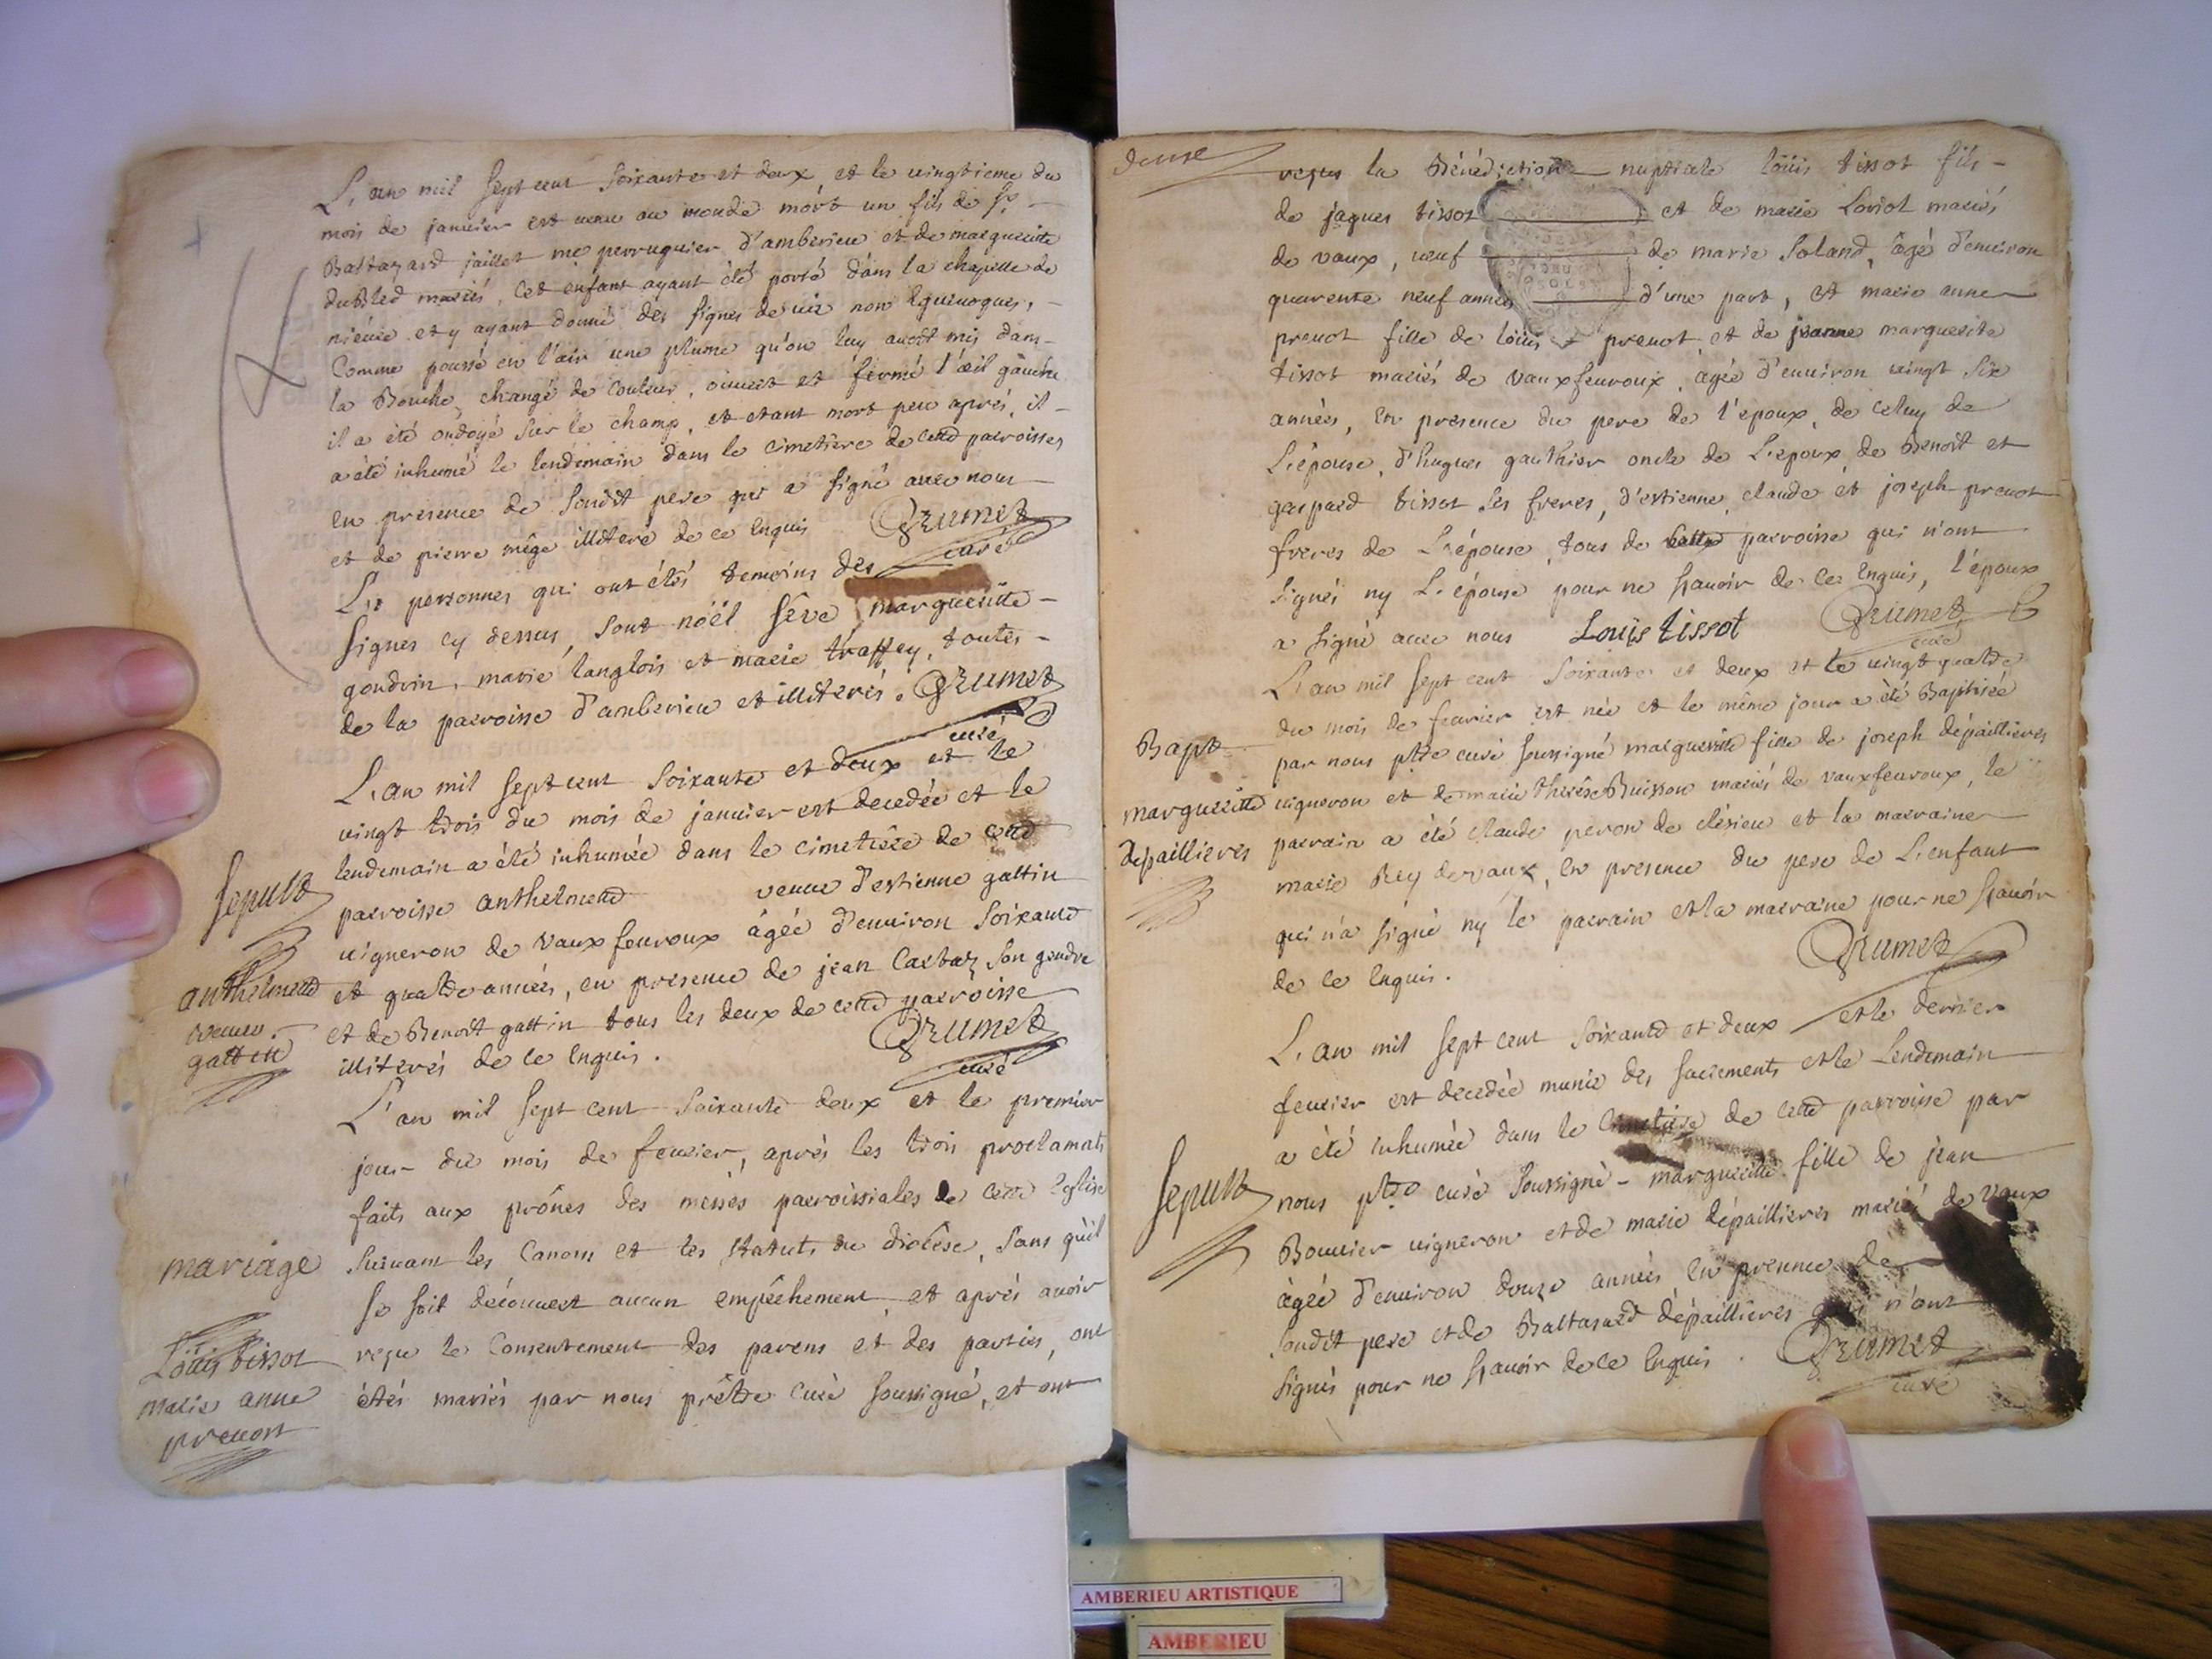 L'an mil sept cent soixante et deux et le vingtieme du
mois de janvier est venu au monde mort un fils de sr
Baltazard jaillet me perruquier d'amberieu et de marguerite
dubled mariés, cet enfant ayant été porté dans la chapelle de
nieuie et y ayant donné des signes de vie non equivoques,
comme poussé en l'air une plume qu'on luy avoit mis dans
la Bouche, changé de couleur, ouvert et fermé l'œil gauche
il a été ondoyé sur le champ, et etant mort peu aprés, il
a été inhumé le lendemain dans le cimetière de cette parroisse
en presence de soudit pere qui a signé avec nous
et de pierre mêge illiteré de ce enquis Grumet
curé
Les personnes qui ont étés temoins des
signes cy dessus, sont nöel sêve marguerite
gondrin, marie langlois et marie traffey, toutes
de la parroisse d'amberieu et illiterés. Grumet
curé
L'an mil sept cent soixante et deux et le
vingt trois du mois de janvier est decedée et le
lendemain a été inhumée dans le cimetière de cette
Sepult parroisse anthelmette veuve d'estienne gattin
vigneron de vaux fevroux âgée d'environ soixante
anthelmette et quatre années, en presence de jean Carbaz son gendre
veuve et de Benoît gattin tous les deux de cette parroisse
gattin illiterés de ce enquis. Grumet
curé
L'an mil sept cent soixante deux et le premier
jour du mois de fevrier, aprés les trois proclamats
faits aux prônes des messes parroissiales de cette Eglise
mariage suivant les Canons et les statuts du diocêse, sans qu'il
se soit découvert aucun empêchement, et aprés avoir
Loüis tissot reçu le Consentement des parens et des parties, ont
marie anne étés mariés par nous prêtre curé soussigné, et ont
prevost
deuxe
reçus la Bénédiction nuptiale loüis tissot fils
de jaques tissot et de marie Loriot mariés
de vaux, veuf de marie Soland, âgé d'environ
quarente neuf années d'une part, et marie anne
prevot fille de loüis prevot et de jeanne marguerite
tissot mariés de vauxfevroux, agée d'environ vingt six
années, en presence du pere de l'epoux, de celuy de
L'épouse, d'hugues gauthier oncle de L'epoux, de Benoît et
gaspard tissot ses freres, d'estienne, claude et joseph prevot
freres de L'épouse, tous de cette parroisse qui n'ont
signés ny L'épouse pour ne sçavoir de ce enquis, l'époux
a signé avec nous Louis tissot Grumet
curé
L'an mil sept cent soixante et deux et le vingt quatre
du mois de fevrier est née et le même jour a été Baptisée
Bapt par nous ptre curé soussigné marguerite fille de joseph dépaillieres
marguerite vigneron et de marie therêse Buisson mariés de vauxfevroux, le
depaillieres parrain a été claude peron de clésieu et la marraine
marie Rey de vaux, en presence du pere de L'enfant
qui n'a signé ny le parrain et la marraine pour ne sçavoir
de ce enquis. Grumet
L'an mil sept cent soixante et deux et le dernier
fevrier est decedée munie des sacrements et le Lendemain
a été inhumée dans le Cimetière de cette parroisse par
Sepult nous ptre curé soussigné marguerite fille de jean
Bouvier vigneron et de marie dépaillieres mariés de vaux
âgée d'environ douze années en presence de
soudit pere et de Baltazard dépaillieres qui n'ont
signés pour ne sçavoir de ce enquis. Grumet
curé
AMBERIEU ARTISTIQUE
AMBERIEU